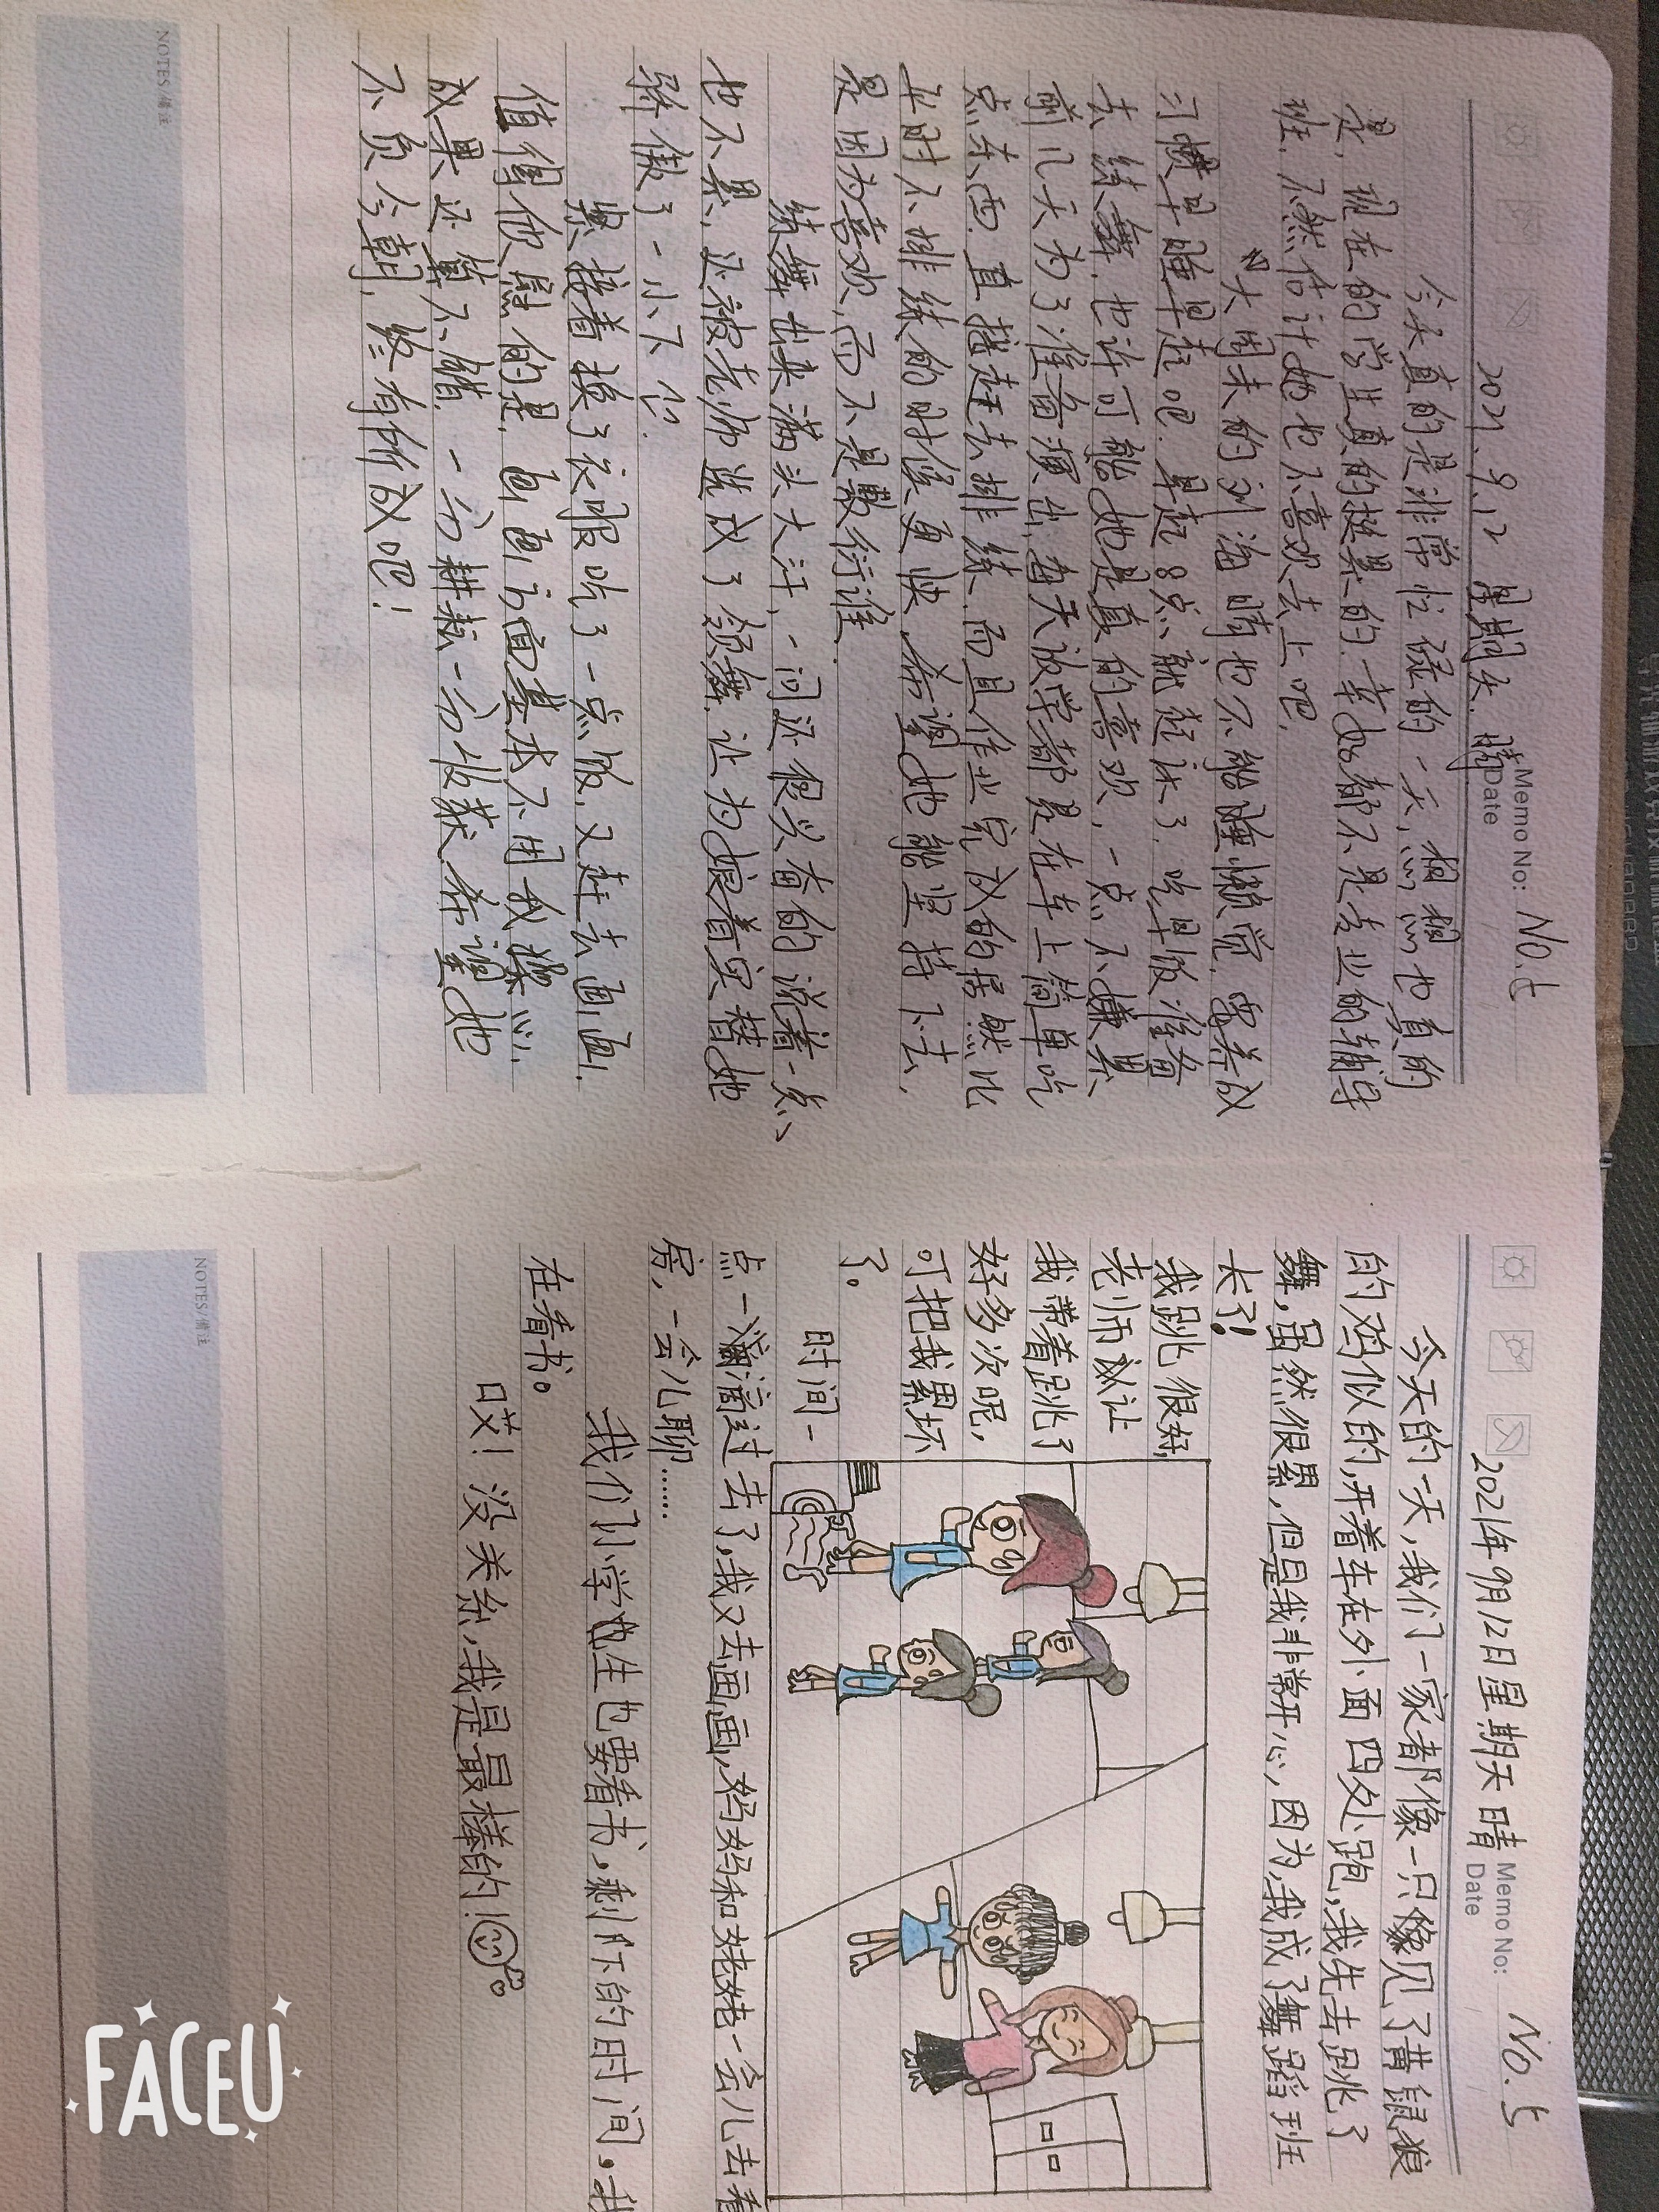 Memo No: No.5
Date
2021.9.12 星期天.晴
今天真的是非常忙碌的一天,烟烟也真的
是,现在的学生真的挺累的.幸好都不是专业的辅导
班,不然估计她也不喜欢去上吧.
大周末的刘海晴也不能睡懒觉.要养成
习惯早睡早起吧.早起8点就起床了.吃早饭准备
去练舞.也许可能她是真的喜欢,一点不嫌累
前几天为了准备演出,每天放学都是在车上简单吃
点东西.直接赶去排练.而且作业完成的居然比
平时不排练的时候更快.希望她能坚持下去,
是因为喜欢,而不是敷衍谁.
练舞出来满头大汗,一问还很兴奋的说着一点
也不累,还被老师选成了领舞.让为娘着实替她
骄傲了一小下下.
紧接着换了衣服吃了一点饭,又赶去画画.
值得欣慰的是,画画方面基本不用我操心.
成果还算不错.一分耕耘一分收获.希望她
不负今朝,终有所成吧!
NOTES/备注
Memo No: No.5
Date
2021年9月12日星期天 晴
今天的一天,我们一家都像一只像见了黄鼠狼
的鸡似的,开着车在外面四处跑,我先去跳了
舞,虽然很累,但是我非常开心,因为,我成了舞蹈班
长了!
我跳很好
老师让
我带着跳了
好多次呢,
可把我累坏
了。
时间一
点一滴过去了,我又去画画,妈妈和姥姥一会儿去看
房,一会儿聊……
我们小学生也要看书,剩下的时间,我
在看书。
哎!没关系,我是最棒的!
NOTES/备注
FACEU